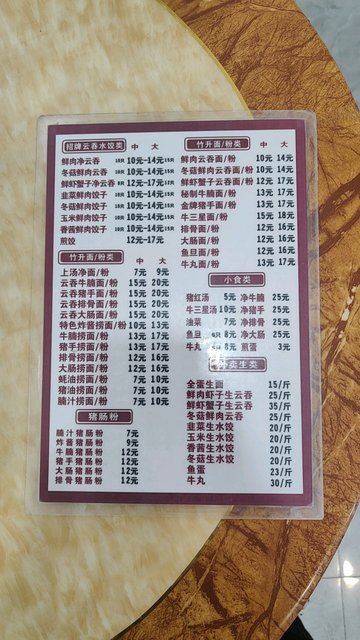 招牌云吞水饺类 中 大
鲜肉净云吞 10只 10元-14元 15只
冬菇鲜肉云吞 10只 10元-14元 15只
鲜虾蟹子净云吞 8只 12元-17元 12只
韭菜鲜肉饺子 10只 10元-14元 15只
冬菇鲜肉饺子 10只 10元-14元 15只
玉米鲜肉饺子 10只 10元-14元 15只
香茜鲜肉饺子 10只 10元-14元 15只
煎饺 12元-17元
竹升面/粉类 中 大
上汤净面/粉 7元 9元
云吞牛腩面/粉 15元 20元
云吞猪手面/粉 15元 20元
云吞排骨面/粉 15元 20元
云吞大肠面/粉 15元 20元
特色炸酱捞面/粉 10元 13元
牛腩捞面/粉 13元 17元
猪手捞面/粉 13元 17元
排骨捞面/粉 12元 16元
大肠捞面/粉 12元 16元
蚝油捞面/粉 7元 10元
猪油捞面/粉 7元 10元
腩汁捞面/粉 7元 10元
猪肠粉
腩汁猪肠粉 7元
炸酱猪肠粉 9元
牛腩猪肠粉 12元
猪手猪肠粉 12元
大肠猪肠粉 12元
排骨猪肠粉 12元
竹升面/粉类 中 大
鲜肉云吞面/粉 10元 14元
冬菇鲜肉云吞面/粉 10元 14元
鲜虾蟹子云吞面/粉 12元 17元
秘制牛腩面/粉 13元 17元
金牌猪手面/粉 13元 17元
牛三星面/粉 15元 18元
排骨面/粉 12元 16元
大肠面/粉 12元 16元
鱼旦面/粉 12元 16元
牛丸面/粉 13元 17元
小食类
猪红汤 5元 净牛腩 25元
牛三星汤 10元 净猪手 25元
油菜 7元 净排骨 25元
鱼旦 8元 净大肠 25元
牛丸 8元 煎蛋 3元
外卖生类
全蛋生面 15/斤
鲜肉虾子生云吞 25/斤
鲜虾蟹子生云吞 35/斤
冬菇鲜肉云吞 25/斤
韭菜生水饺 20/斤
玉米生水饺 20/斤
香茜生水饺 20/斤
冬菇生水饺 20/斤
鱼蛋 23/斤
牛丸 30/斤